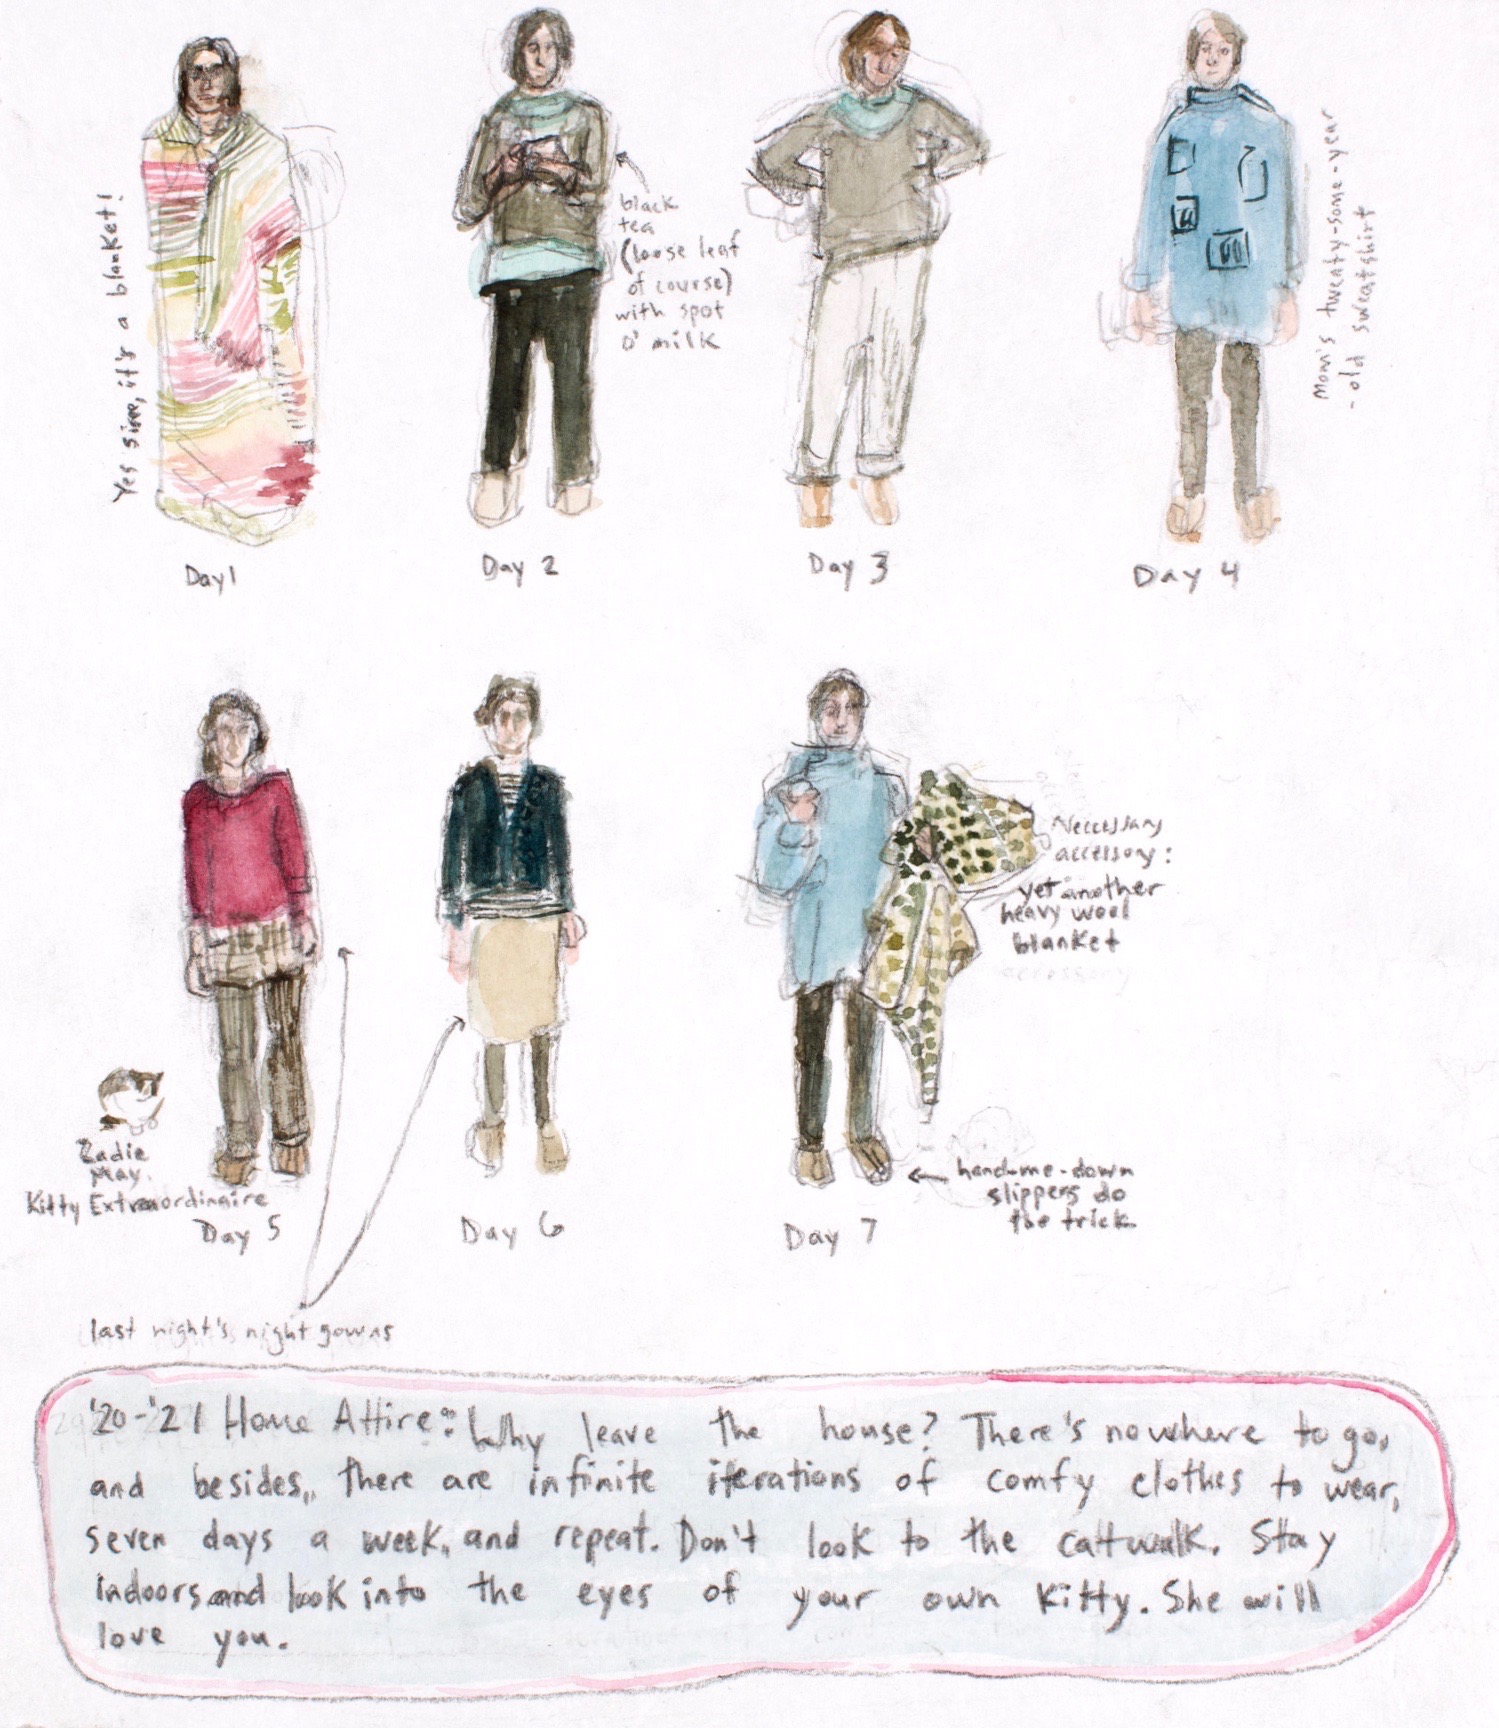 Yes siree, it's a blanket!
black
tea
(loose leaf
of course)
with spot
o' milk
Mom's tweaty-some-year
-old sweatshirt
Day 1
Day 2
Day 3
Day 4
Neccessary
accessory:
yet another
heavy wool
blanket
accessory
Zadie
May.
Kitty Extraordinaire
hand-me-down
slippers do
the trick
Day 5
Day 6
Day 7
last night's night gowns
'20-'21 Home Attire: Why leave the house? There's nowhere to go,
and besides, there are infinite iterations of comfy clothes to wear,
seven days a week, and repeat. Don't look to the cattwalk. Stay
indoors and look into the eyes of your own kitty. She will
love you.